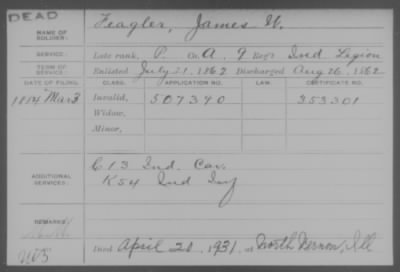 DEAD
NAME OF SOLDIER: Feagler, James W.
SERVICE: Late rank, P. Co. A, 9 Reg't Ind. Legion
TERM OF SERVICE: Enlisted July 21, 1862 Discharged Aug 26, 1862
DATE OF FILING. CLASS. APPLICATION NO. LAW. CERTIFICATE NO.
Mar 3 Invalid, 507390 353301
Widow,
Minor,
ADDITIONAL SERVICES: C 13 Ind. Cav.
K 54 Ind Inf
REMARKS:
Died April 20, 1931, at North Vernon,